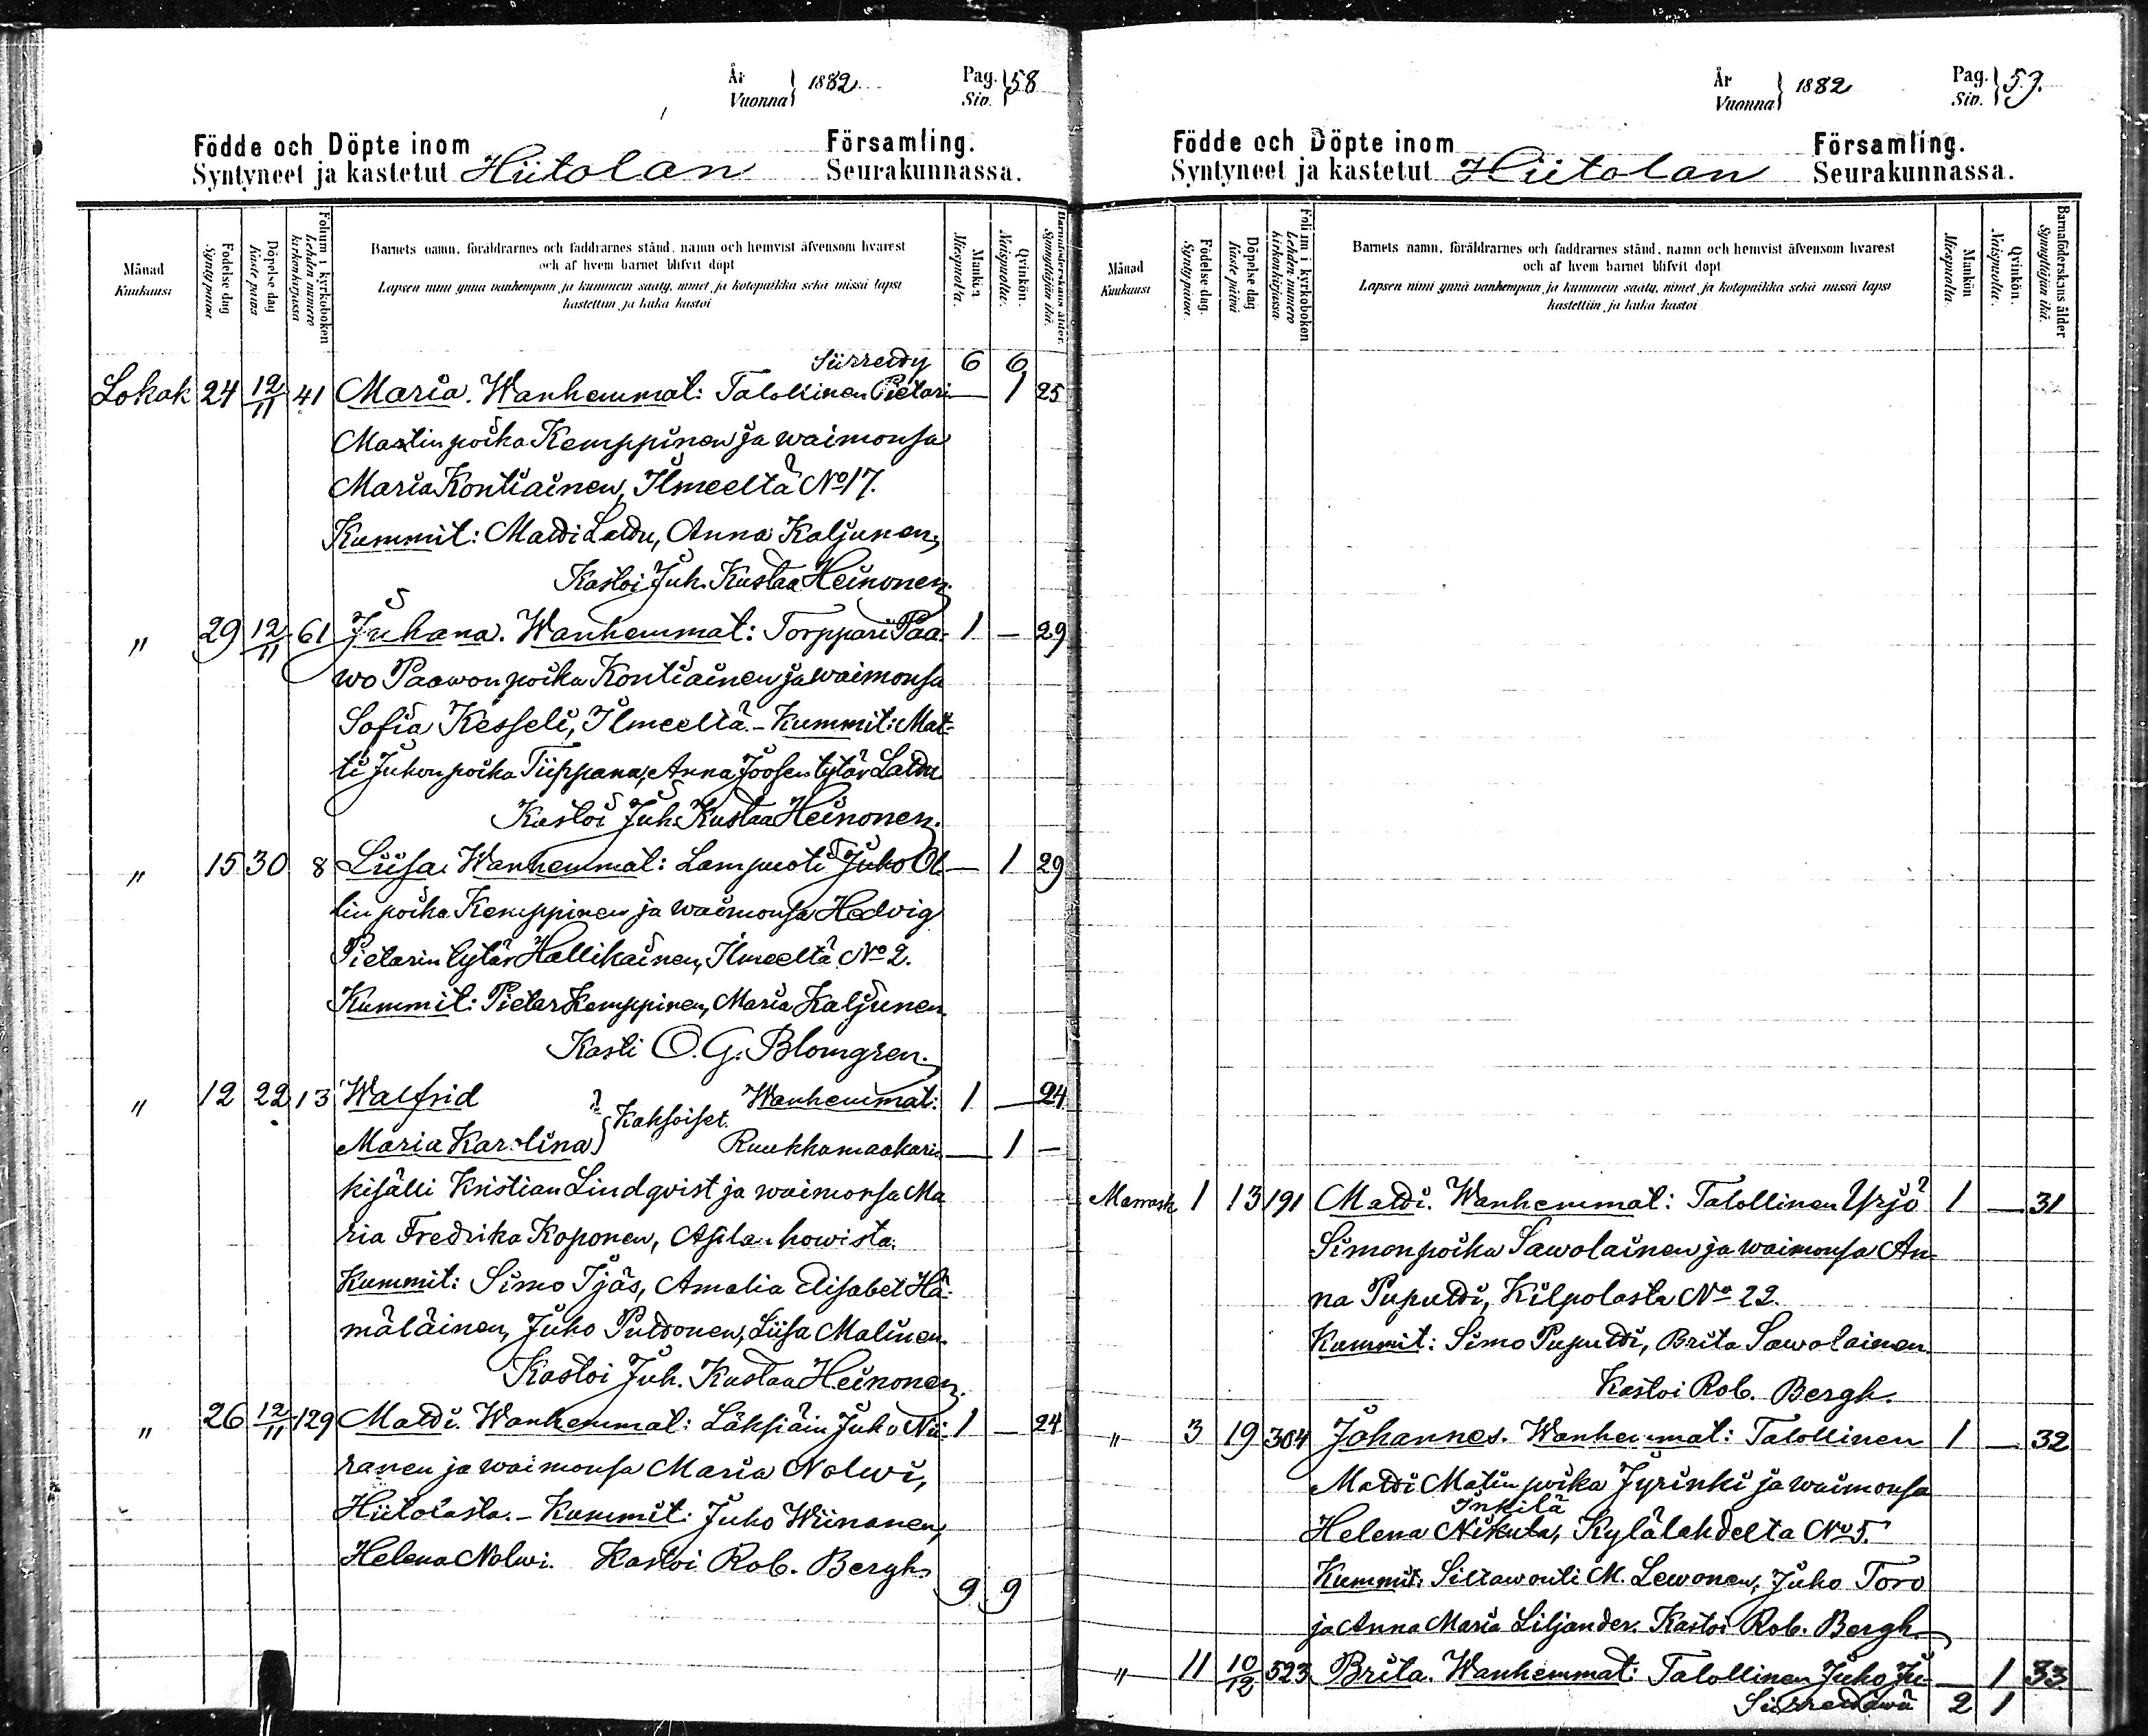 År
Vuonna } 1882
Pag.
Siv. } 58
Födde och Döpte inom
Syntyneet ja kastetut Hiitolan
Församling.
Seurakunnassa.
Månad
Kuukausi
Födelse dag
Syntypäiva
Döpelse dag
Kaste päiva
Folium i kyrkoboken
Lehden numero
kirkonkirjassa
Barnets namn, föräldrarnes och faddrarnes stånd, namn och hemvist äfvensom hvarest
och af hvem barnet blifvit döpt
Lapsen nimi ynnä vanhempain ja kummein sääty, nimet ja kotopaikka sekä missä lapsi
kastettiin ja kuka kastoi
Mankön.
Miespuolia.
Qvinkön.
Naispuolia.
Barnaföderskans ålder.
Synnyttäjän ikä.
Siirretty 6 6
Lokak 24 12/11 41 Maria. Wanhemmat: Talollinen Pietari — 1 25
Matin poika Kemppinen ja waimonsa
Maria Kontiainen, Ilmeeltä No 17.
Kummit: Matti Lattu, Anna Kaljunen,
Kastoi Juh. Kustaa Heinonen.
" 29 12/11 61 Juhana. Wanhemmat: Torppari Paa- 1 — 29
wo Paawon poika Kontiainen ja waimonsa
Sofia Kesseli, Ilmeeltä. - Kummit: Mat-
ti Juhon poika Tiippana, Anna Joosen tytär Lattu
Kastoi Juh. Kustaa Heinonen.
" 15 30 8 Liisa. Wanhemmat: Lampuoti Juho Ol- — 1 29
lin poika Kemppinen ja waimonsa Hedvig
Pietarin tytär Hallikainen, Ilmeeltä No 2.
Kummit: Pietar Kemppinen, Maria Kaljunen
Kasti O. G. Blomgren.
" 12 22 13 Walfrid Wanhemmat: 1 — 24
Kaksoiset.
Maria Karolina Ruukkumaakarin — 1 —
kisälli Kristian Lindqvist ja waimonsa Ma
ria Fredrika Koponen,
Kummit: Simo Ijäs, Amalia Elisabet Hä-
mäläinen, Juho Puttonen, Liisa Malinen
Kastoi Juh. Kustaa Heinonen.
" 26 12/11 129 Matti. Wanhemmat: Läksiäin Juho Nii- 1 — 24
ranen ja waimonsa Maria Nalwi,
Hiitolasta. - Kummit: Juho Wiinanen,
Helena Nalwi. Kastoi Rob. Bergh
9 9
År
Vuonna } 1882
Pag.
Siv. } 59.
Födde och Döpte inom
Syntyneet ja kastetut Hiitolan
Församling.
Seurakunnassa.
Månad
Kuukausi
Födelse dag.
Syntypäiva.
Döpelse dag
Kaste päivä
Folium i kyrkoboken
Lehden numero
kirkonkirjassa.
Barnets namn, föräldrarnes och faddrarnes stånd, namn och hemvist äfvensom hvarest
och af hvem barnet blifvit döpt
Lapsen nimi ynnä vanhempain ja kummein sääty, nimet ja kotopaikka sekä missä lapsi
kastettiin ja kuka kastoi
Mankön
Miespuolia.
Qvinkön.
Naispuolia.
Barnaföderskans ålder
Synnyttäjän ikä.
Marrask 1 13 191 Matti. Wanhemmat: Talollinen Yrjö 1 — 31
Simon poika Sawolainen ja waimonsa An-
na Puputti, Kilpolasta No 22.
Kummit: Simo Puputti, Brita Sawolainen
Kastoi Rob. Bergh.
" 3 19 304 Johannes. Wanhemmat: Talollinen 1 — 32
Matti Matin poika Jyrinki ja waimonsa
Inkilä
Helena Nikula, Kylälahdelta No 5.
Kummit: Siltawouti M. Lewonen, Juho Toro
ja Anna Maria Liljander. Kastoi Rob. Bergh.
" 11 10/12 523 Brita. Wanhemmat: Talollinen Juho Ju- — 1 33
Siirrettäwä 2 1